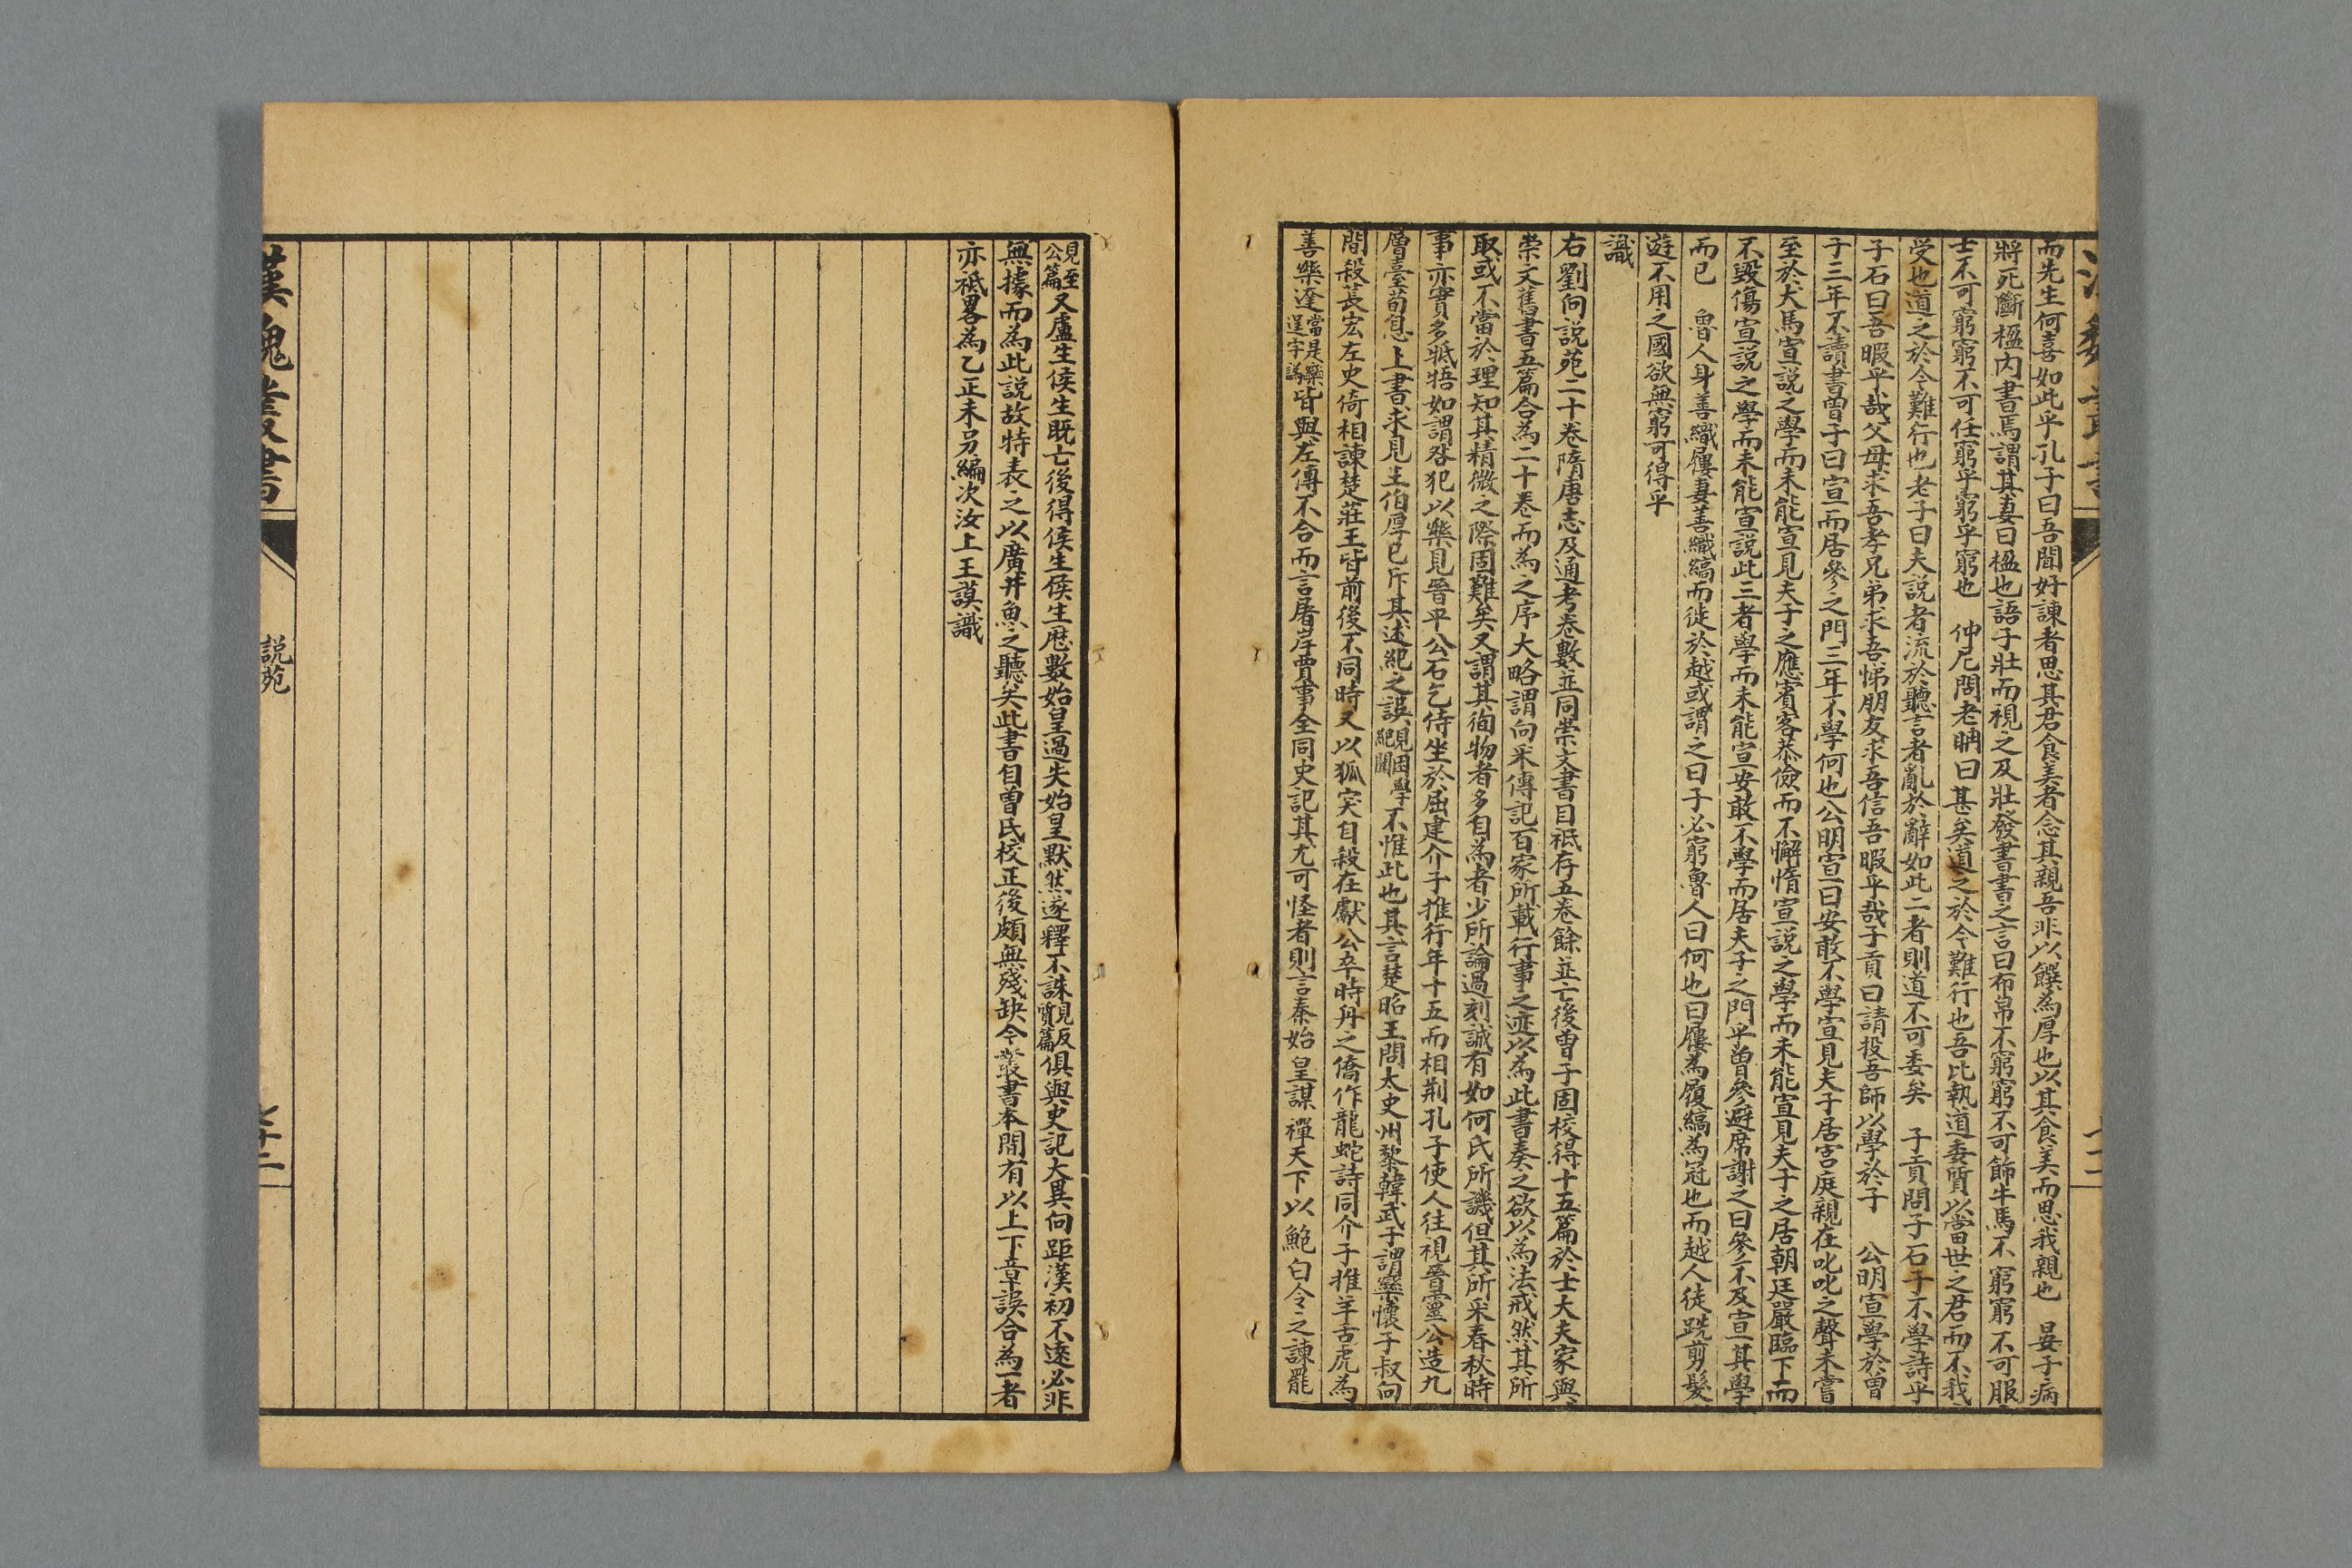 而先生何喜如此乎孔子曰吾聞好諫者思其君食美者念其親吾非以饌為厚也以其食美而思我親也　晏子病
將死斷楹内書焉謂其妻曰楹也語子壯而視之及壯發書書之言曰布帛不窮窮不可飾牛馬不窮窮不可服
士不可窮窮不可任窮乎窮乎窮也　仲尼問老聃曰甚矣道之於今難行也吾比執道委質以當世之君而不我
受也道之於今難行也老子曰夫説者流於聽言者亂於辭如此二者則道不可委矣　子貢問子石子不學詩乎
子石曰吾暇乎哉父母求吾孝兄弟求吾悌朋友求吾信吾暇乎哉子貢曰請投吾師以學於子　公明宣學於曾
子三年不讀書曾子曰宣而居參之門三年不學何也公明宣曰安敢不學宣見夫子居宮庭親在叱叱之聲未嘗
至於犬馬宣説之學而未能宣見夫子之應賓客恭儉而不懈惰宣説之學而未能宣見夫子之居朝廷嚴臨下而
不毀傷宣説之學而未能宣説此三者學而未能宣安敢不學而居夫子之門乎曾參避席謝之曰參不及宣其學
而已　魯人身善織屨妻善織縞而徙於越或謂之曰子必窮魯人曰何也曰屨為履縞為冠也而越人徒跣剪髮
遊不用之國欲無窮可得乎
識
右劉向説苑二十卷隋唐志及通考卷數並同崇文書目衹存五卷餘並亡後曾子固校得十五篇於士大夫家與
崇文舊書五篇合為二十卷而為之序大略謂向采傳記百家所載行事之迹以為此書奏之欲以為法戒然其所
取或不當於理知其精微之際固難矣又謂其徇物者多自為者少所論過刻誠有如何氏所譏但其所采春秋時
事亦實多牴牾如謂咎犯以樂見晉平公石乞侍坐於屈建介子推行年十五而相荆孔子使人往視晉靈公造九
層臺荀息上書求見王伯厚已斥其述紀之誤見困學紀聞不惟此也其言楚昭王問太史州黎韓武子謂欒懷子叔向
間殺萇宏左史倚相諫楚莊王皆前後不同時又以狐突自殺在獻公卒時舟之僑作龍蛇詩同介子推羊舌虎為
善樂逢當是欒逞字譌皆與左傳不合而言屠岸賈事全同史記其尤可怪者則言秦始皇謀禪天下以鮑白令之諫罷
見至公篇又盧生侯生既亡後得侯生侯生歷數始皇過失始皇默然遂釋不誅見反質篇俱與史記大異向距漢初不遠必非
無據而為此説故特表之以廣井魚之聽矣此書自曾氏校正後頗無殘缺今叢書本間有以上下章誤合為一者
亦衹畧為乙正未另編次汝上王謨識
漢魏叢書
説苑